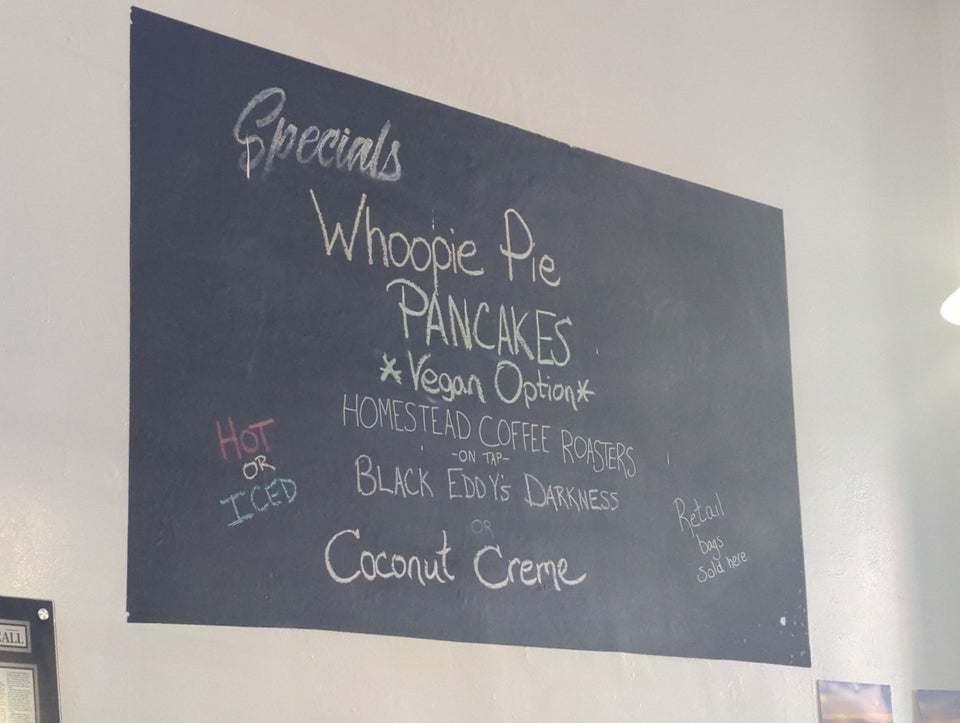 Specials
Whoopie Pie
PANCAKES
*Vegan Option*
HOMESTEAD COFFEE ROASTERS
-ON TAP-
BLACK EDDY'S DARKNESS
OR
Coconut Creme
HOT
OR
ICED
Retail
bags
Sold here
CALL